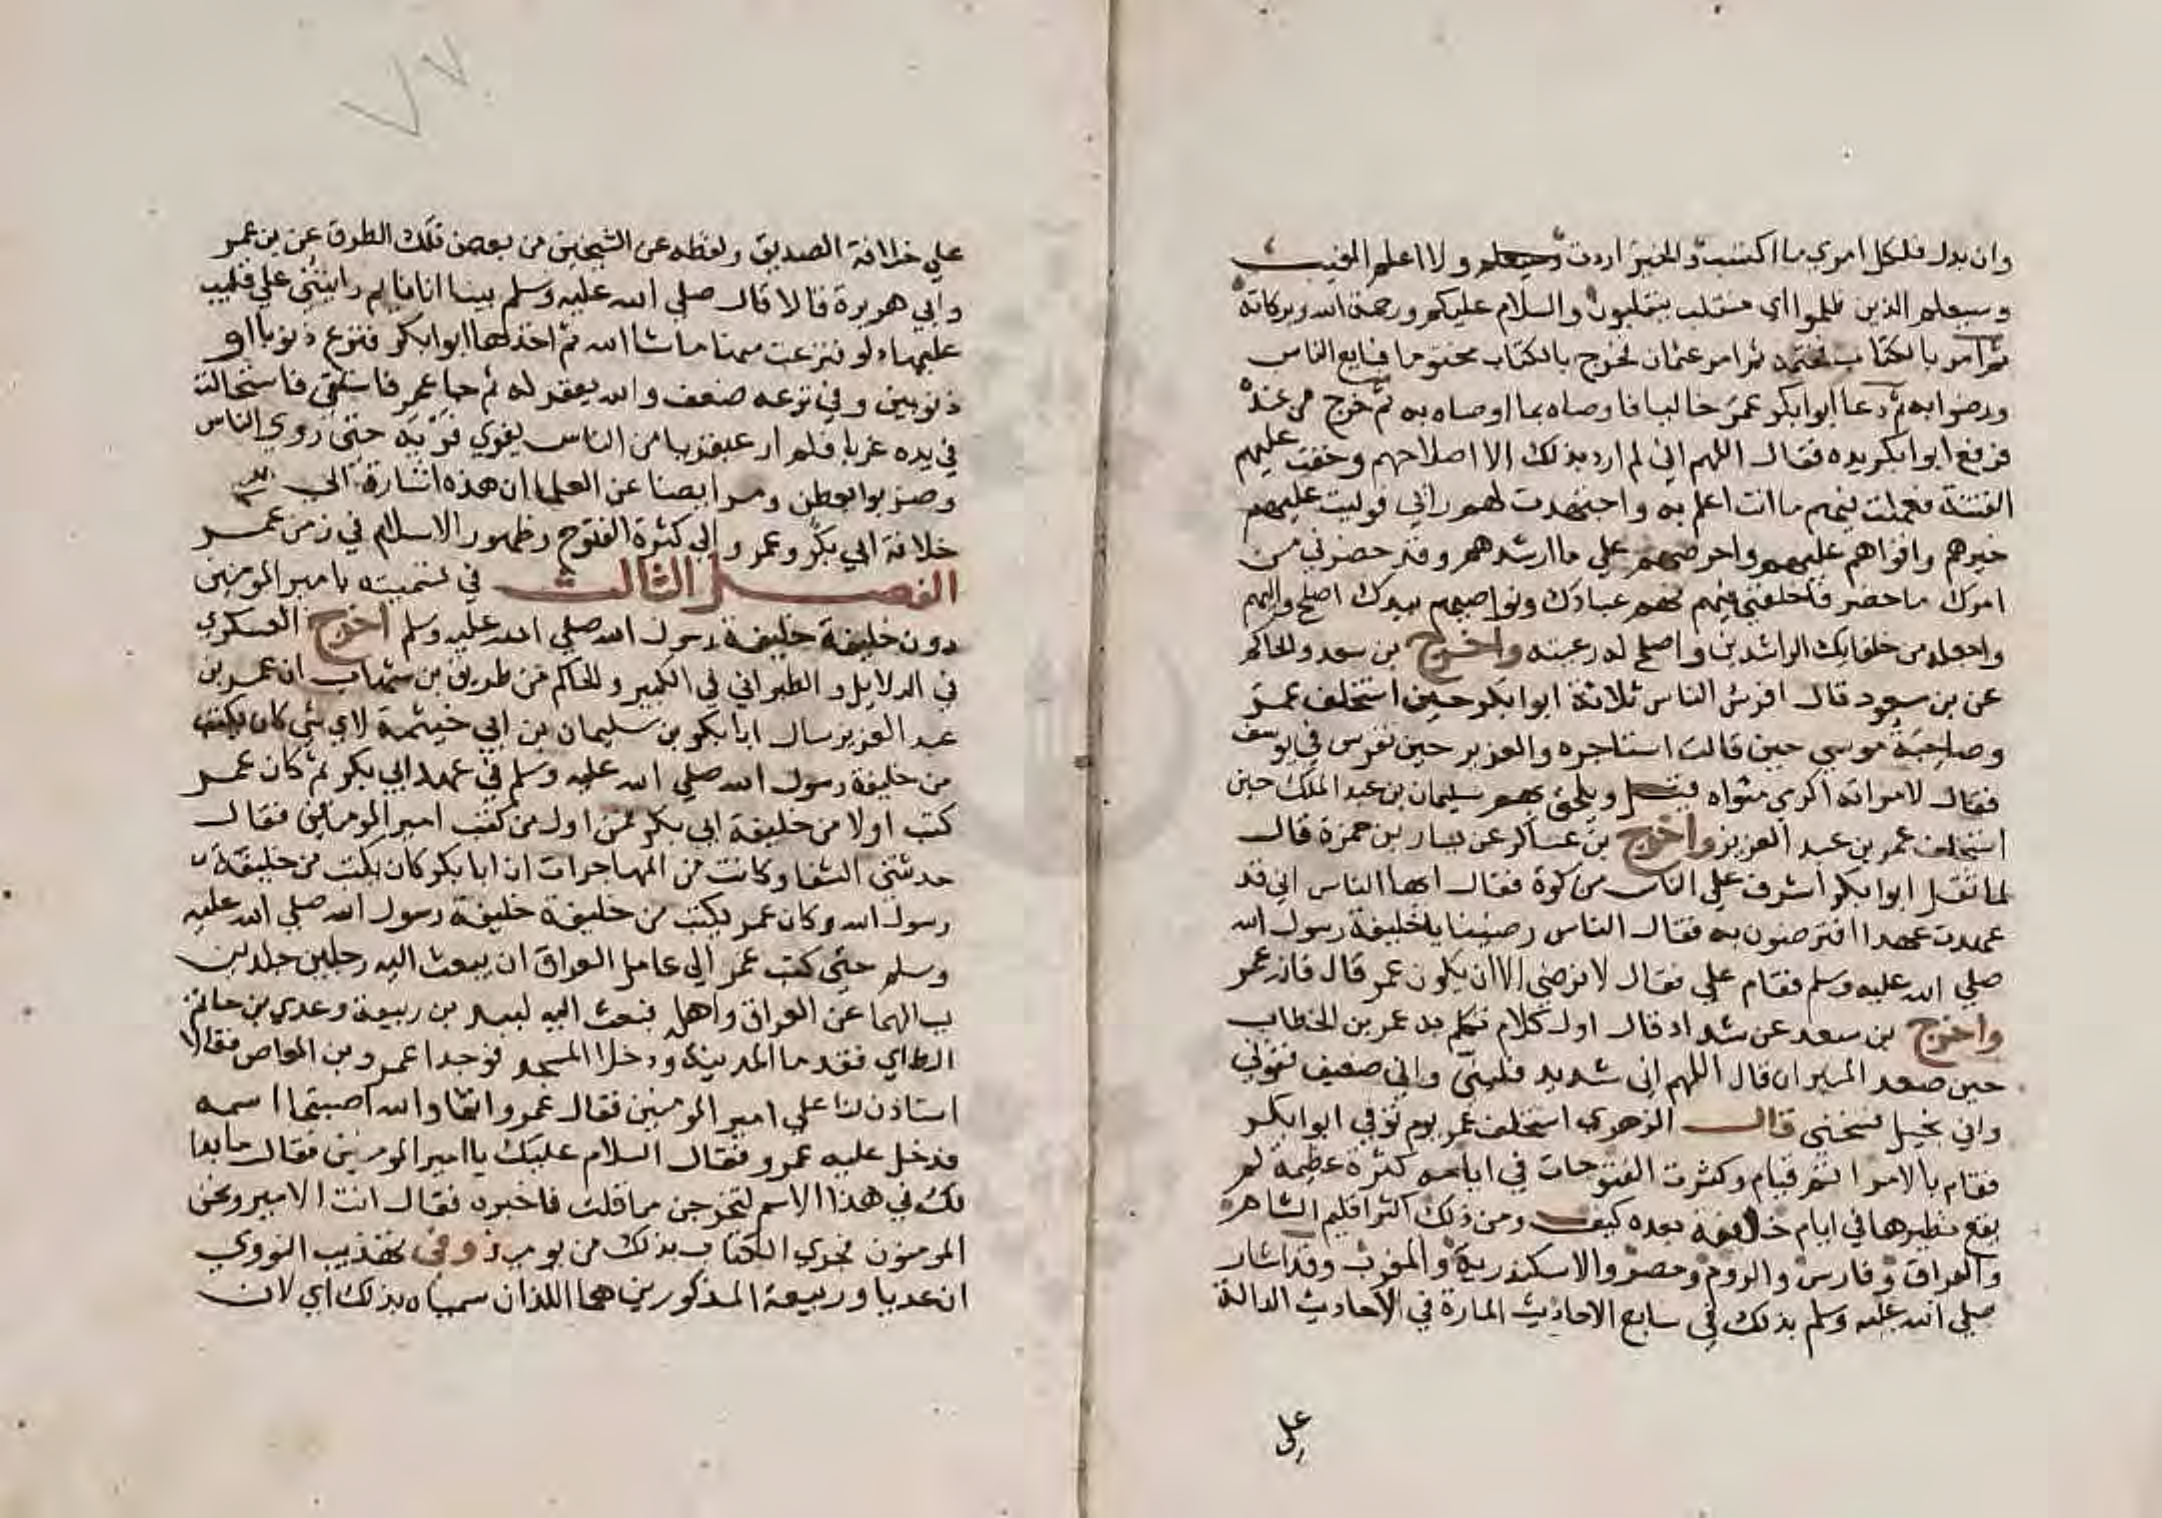 وان بدل فلكل امري ما اكتسب والخير اردت ولا اعلم الغيب
وسيعلم الذين ظلموا اي منقلب ينقلبون والسلام عليكم ورحمة الله وبركاته
ثم امر بالكتاب فختمه ثم امر عثمان فخرج بالكتاب مختوما فبايع الناس
ورضوا به ثم دعا ابوابكر عمر خاليا فاوصاه بما اوصاه به ثم خرج من عنده
فرفع ابوابكر يده فقال اللهم اني لم ارد بذلك الا اصلاحهم وخفت عليهم
الفتنة فعملت فيهم ما انت اعلم به واجتهدت لهم رائي فوليت عليهم
خيرهم واقواهم عليهم واحرصهم علي ما ارشدهم وقد حضرني من
امرك ما حضر فاخلفني فيهم فهم عبادك ونواصيهم بيدك اصلح واليهم
واجعله من خلفايك الراشدين واصلح له رعيته واخرج بن سعد والحاكم
عن بن مسعود قال افرس الناس ثلاثة ابوابكر حين استخلف عمر
وصاحبة موسي حين قالت استاجره والعزيز حين تفرس في يوسف
فقال لامراته اكرمي مثواه قيل ويلحق بهم سليمان بن عبد الملك حين
استخلف عمر بن عبد العزيز واخرج بن عساكر عن يسار بن حمزة قال
لما ثقل ابوابكر اشرف علي الناس من كوة فقال ايها الناس اني قد
عهدت عهدا افترضون به فقال الناس رضينا يا خليفة رسول الله
صلي الله عليه وسلم فقام علي فقال لا نرضي الا ان يكون عمر قال فانه عمر
واخرج بن سعد عن شداد قال اول كلام تكلم به عمر بن الخطاب
حين صعد المنبر ان قال اللهم اني شديد فليني واني ضعيف فقوني
واني بخيل فسخني قال الزهري استخلف عمر يوم توفي ابوابكر
فقام بالامر اتم قيام وكثرت الفتوحات في ايامه كثرة عظيمة لم
يقع نظيرها في ايام خلافة بعده كيف ومن ذلك اكثر اقليم الشاهرة
والعراق وفارس والروم ومصر والاسكندرية والمغرب وقد اشار
صلي الله عليه وسلم بذلك في سابع الاحاديث المارة في الاحاديث الدالة
علي
٧٧
علي خلافة الصديق ولفظه عن الشيخين من بعض تلك الطرق عن بن عمر
وابي هريرة قالا قال صلي الله عليه وسلم بينا انا نايم رايتني علي قليب
عليها دلو فنزعت منها ما شا الله ثم اخذها ابوابكر فنزع ذنوبا او
ذنوبين وفي نزعه ضعف والله يغفر له ثم جا عمر فاستقي فاستحالت
في يده غربا فلم ار عبقريا من الناس يفري فريه حتي روي الناس
وضربوا بعطن ومر ايضا عن العلما ان هذه اشارة الي
خلافة ابي بكر وعمر والي كثرة الفتوح وظهور الاسلام في زمن عمر
الفصل الثالث في تسميته بامير المومنين
دون خليفة خليفة رسول الله صلي الله عليه وسلم اخرج العسكري
في الدلايل والطبراني في الكبير والحاكم من طريق بن شهاب ان عمر بن
عبد العزيز سال ابا بكر بن سليمان بن ابي خيثمة لاي شي كان يكتب
من خليفة رسول الله صلي الله عليه وسلم في عهد ابي بكر ثم كان عمر
كتب اولا من خليفة ابي بكر فمن اول من كتب امير المومنين فقال
حدثتني الشفا وكانت من المهاجرات ان ابا بكر كان يكتب من خليفة
رسول الله وكان عمر يكتب من خليفة خليفة رسول الله صلي الله عليه
وسلم حتي كتب عمر الي عامل العراق ان يبعث اليه رجلين جلدين
يسالهما عن العراق واهله فبعث اليه لبيد بن ربيعة وعدي بن حاتم
الطاي فقدما المدينة ودخلا المسجد فوجدا عمرو بن العاص فقالا
استاذن لنا علي امير المومنين فقال عمرو انتما والله اصبتما اسمه
فدخل عليه عمرو فقال السلام عليك يا امير المومنين فقال ما بدا
لك في هذا الاسم لتخرجن مما قلت فاخبره فقال انت الامير ونحن
المومنون فجري الكتاب بذلك من يوميذ وفي تهذيب النووي
ان عديا وربيعة المذكورين هما اللذان سمياه بذلك اي لان